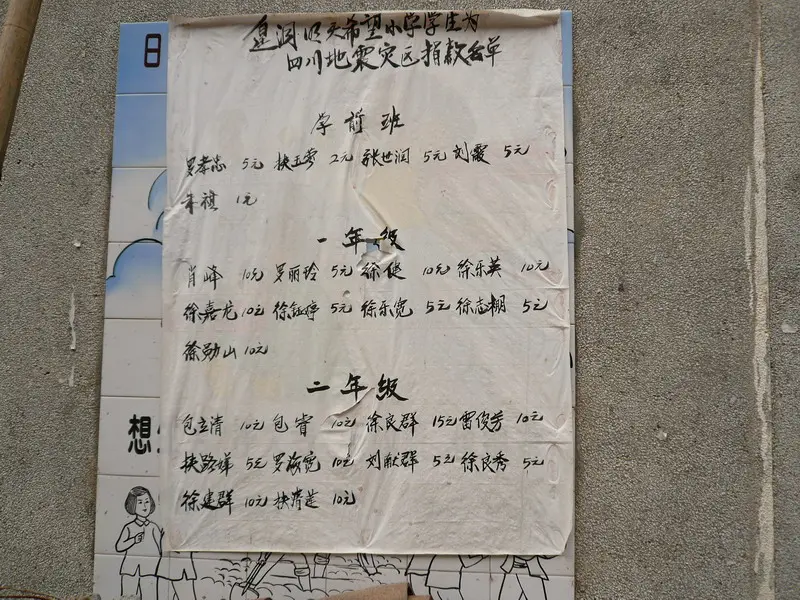 皇洞明天希望小学学生为
四川地震灾区捐款名单
学前班
罗孝忠 5元 扶玉蓉 2元 张世润 5元 刘霞 5元
朱祺 1元
一年级
肖峰 10元 罗丽玲 5元 徐健 10元 徐乐英 10元
徐嘉龙 10元 徐钰婷 5元 徐乐宽 5元 徐志棚 5元
徐勋山 10元
二年级
包立清 10元 包睿 10元 徐良群 15元 雷俊芳 10元
扶路娣 5元 罗海宽 10元 刘献群 5元 徐良秀 5元
徐建群 10元 扶清莲 10元
日
想